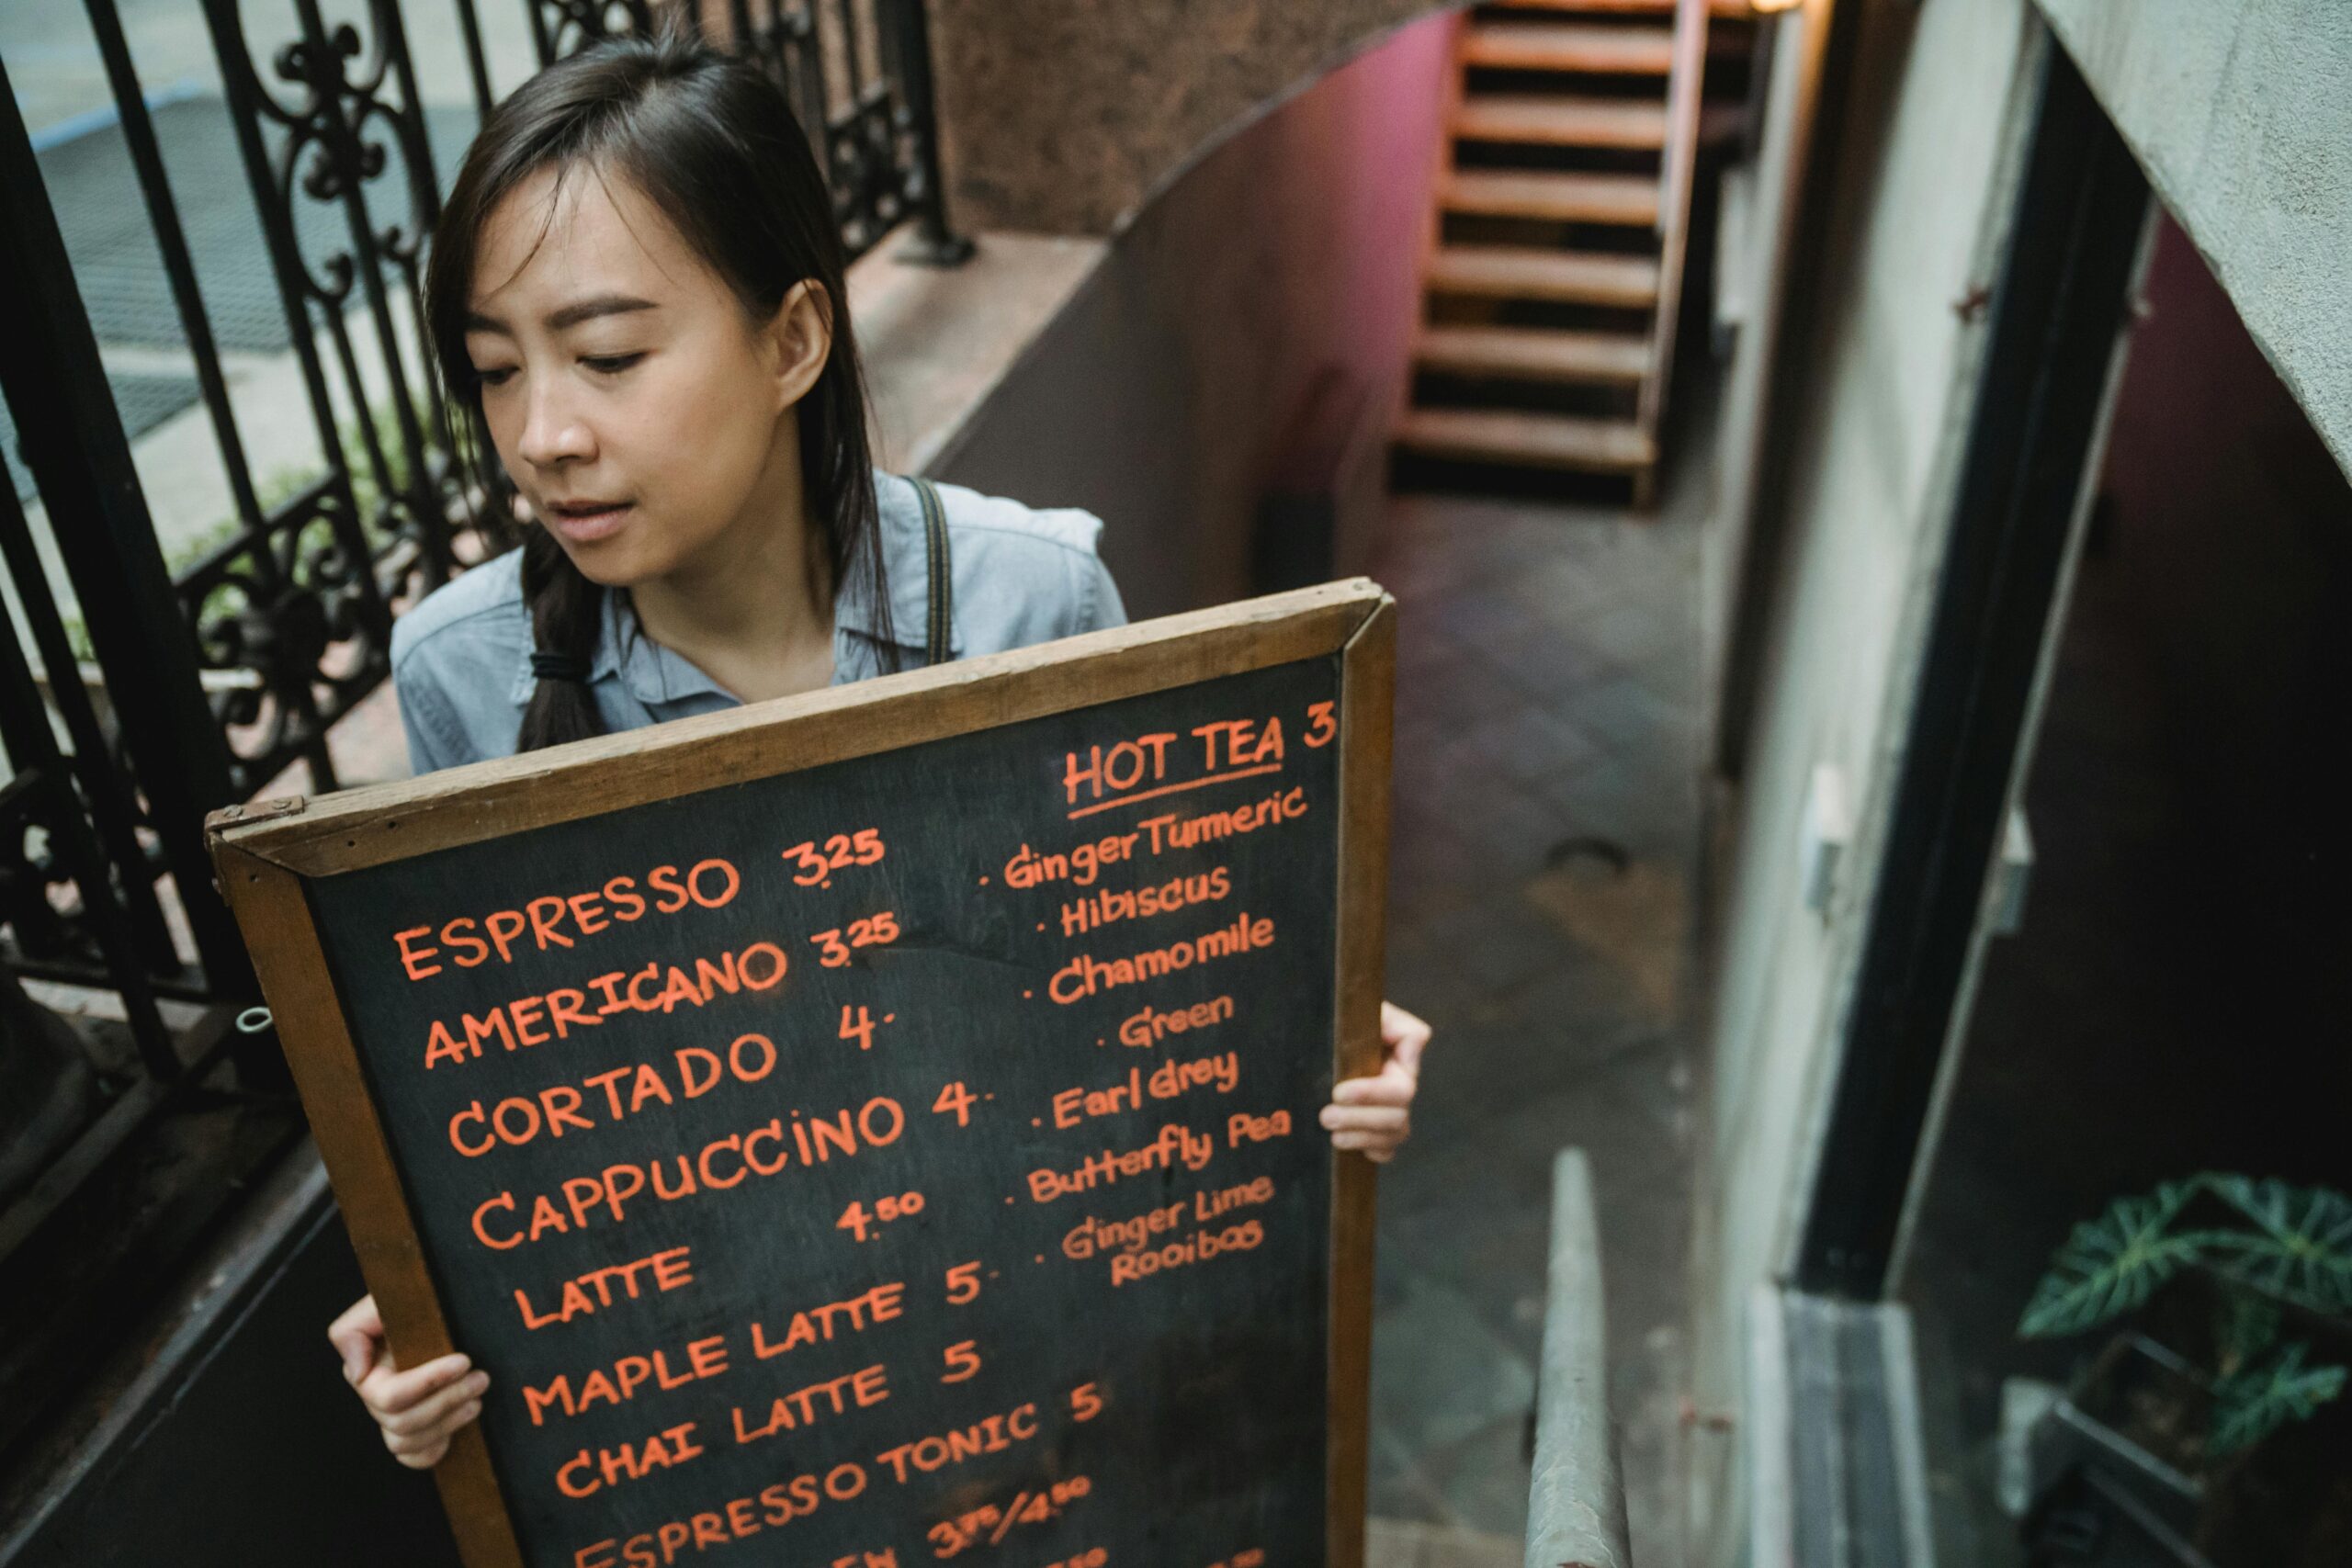 ESPRESSO 3.25
AMERICANO 3.25
CORTADO 4.
CAPPUCCiNO 4.
LATTE 4.50
MAPLE LATTE 5.
CHAI LATTE 5
ESPRESSO TONIC 5
3.75/4.50
HOT TEA 3
· Ginger Turmeric
· Hibiscus
· Chamomile
· Green
· Earl Grey
· Butterfly Pea
· Ginger Lime
Rooibos